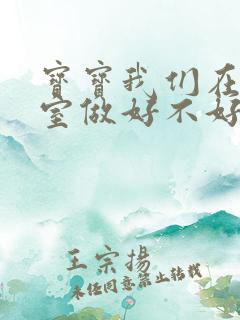 宝宝我们在
室做好不好
王宗揚
未经同意禁止转载